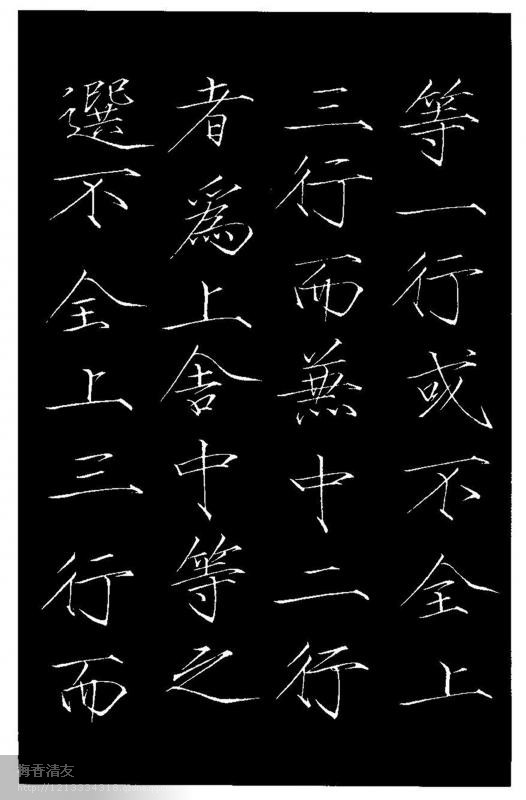 等一行或不全上
三行而兼中二行
者為上舍中等之
選不全上三行而
梅香清友